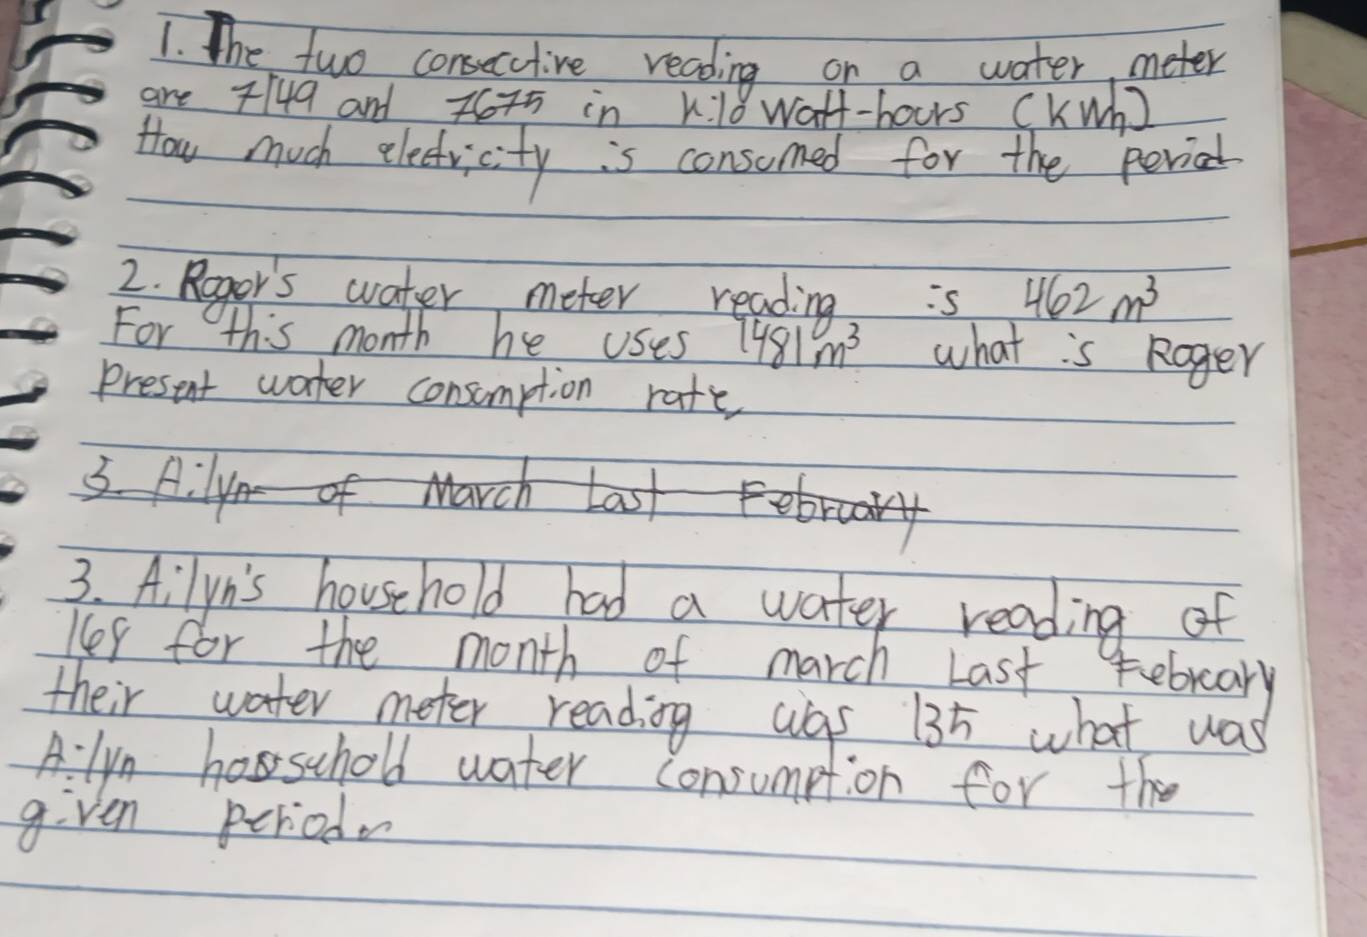 1. The two consecctive reading on a water meter
are 7149 and 7675 in kilo watt-hours (kWh)
How much electricity is consumed for the period
2. Roger's water meter reading is 462 m³
For this month he uses 1481m³ what is Roger
present water consumption rate
3. Ailyn of March Last February
3. Ailyn's household had a water reading of
168 for the month of march Last Febreary
their water meter reading was 135 what was
Ailyn household water consumption for the
given period